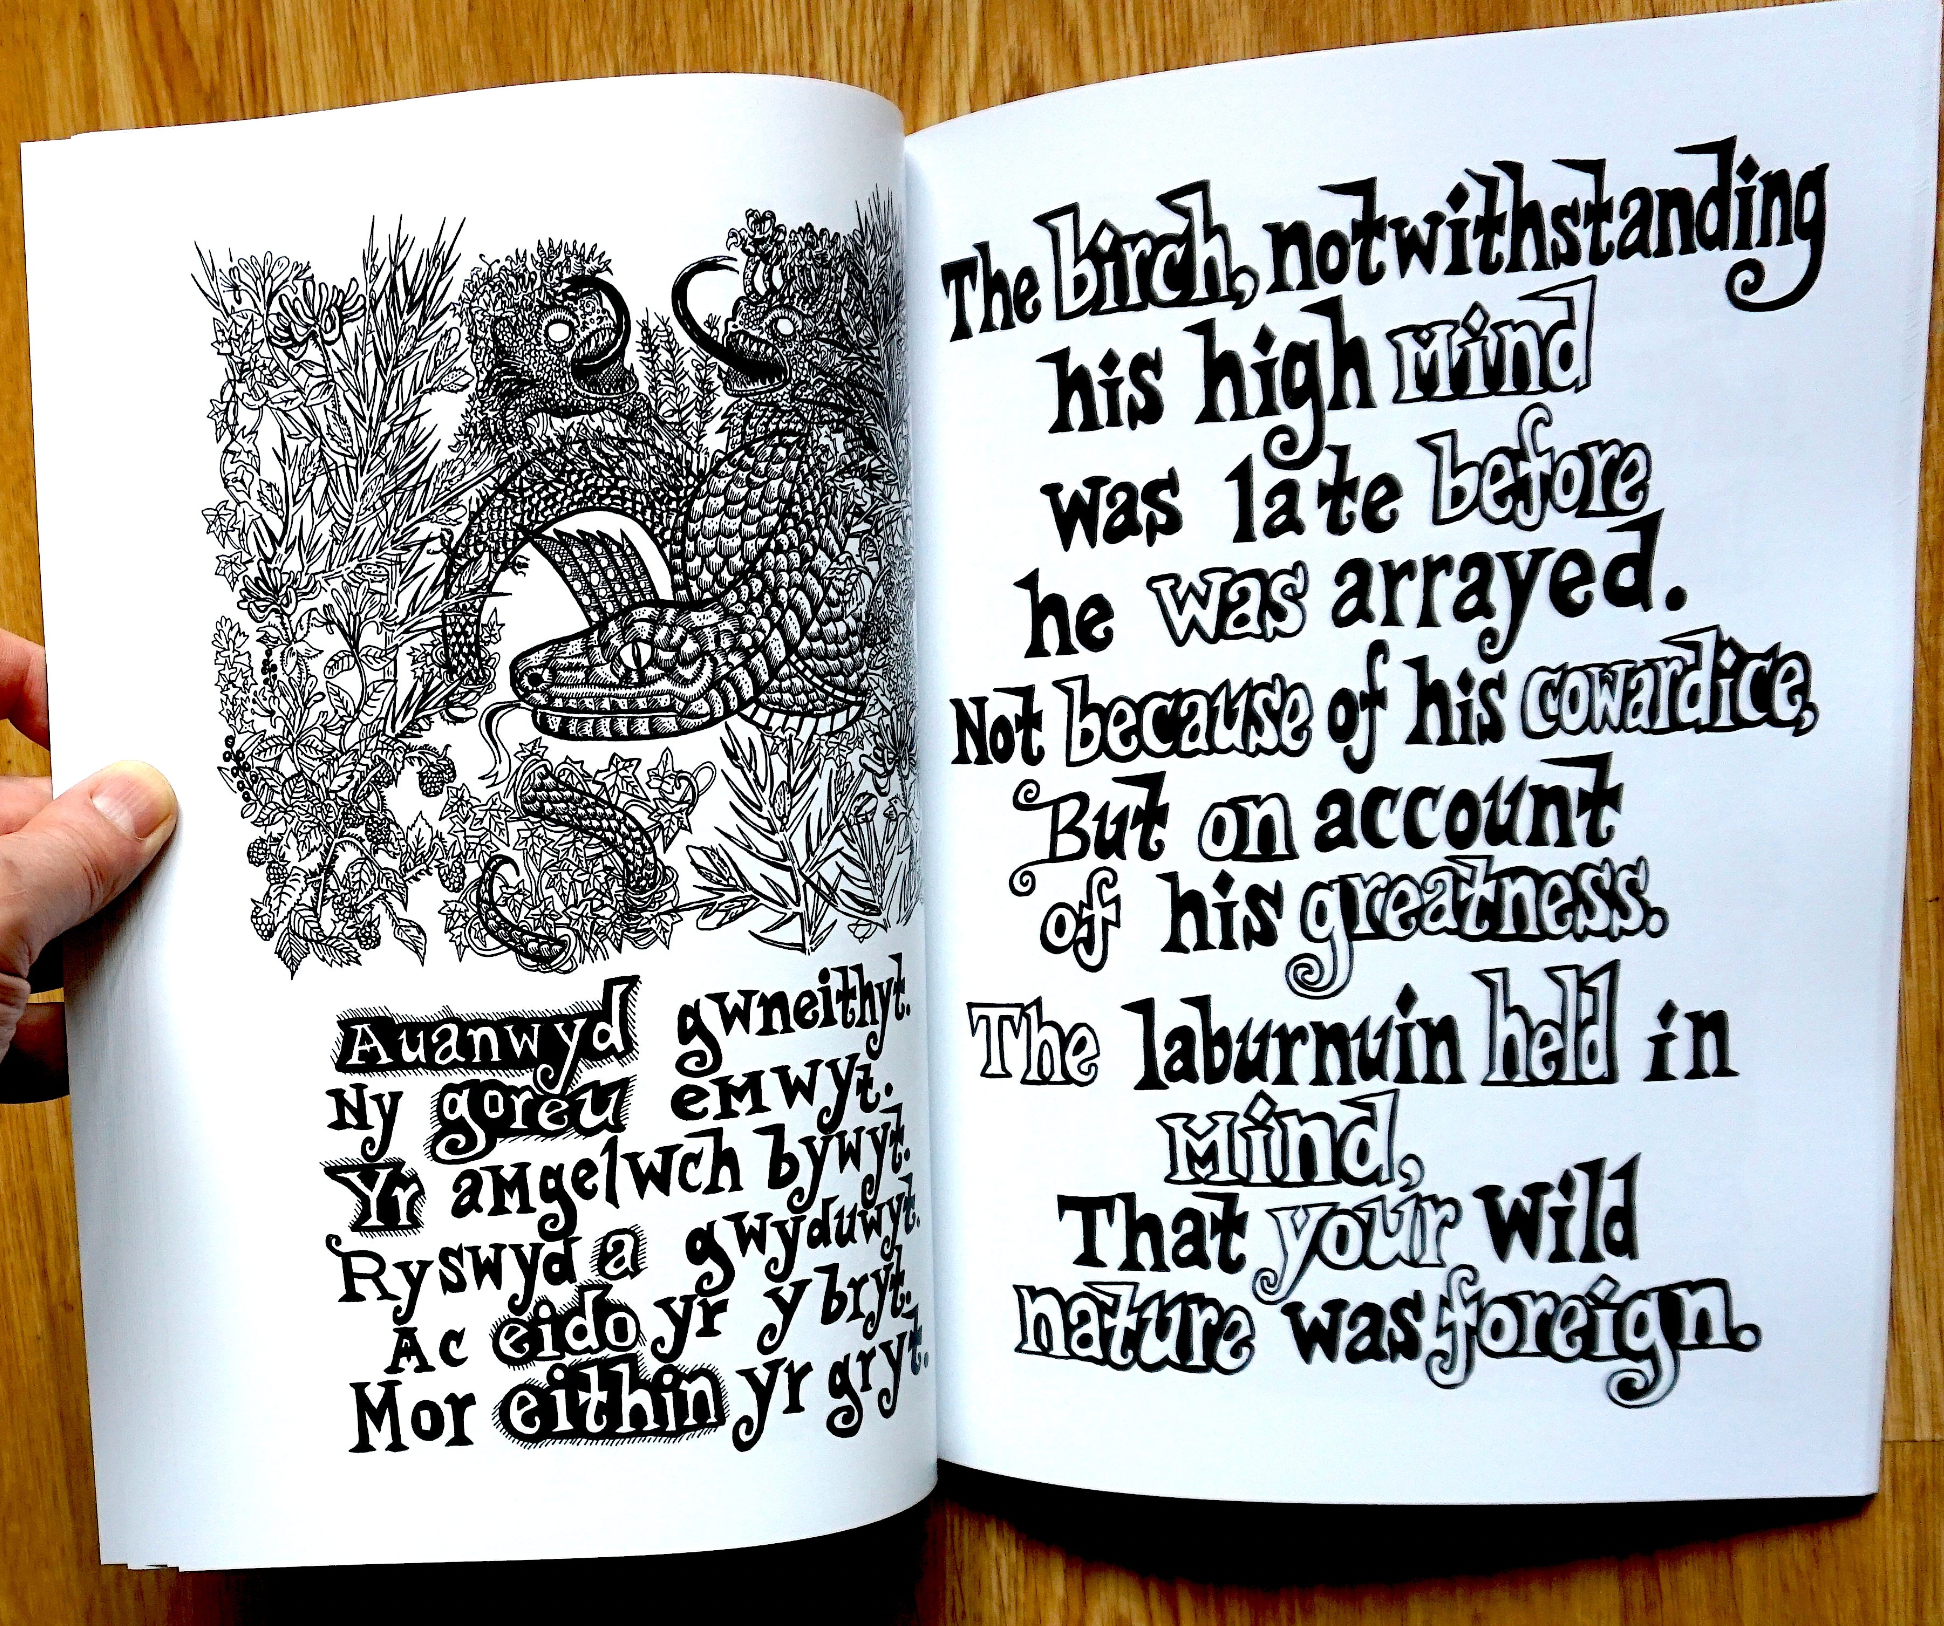 Auanwyd gwneithyt.
Ny goreu emwyt.
Yr amgelwch bywyt.
Ryswyd a gwyduwyt.
Ac eido yr y bryt.
Mor eithin yr gryt.
The birch, notwithstanding
his high Mind
was late before
he was arrayed.
Not because of his cowardice,
But on account
of his greatness.
The laburnuin held in
Mind,
That your Wild
nature was foreign.